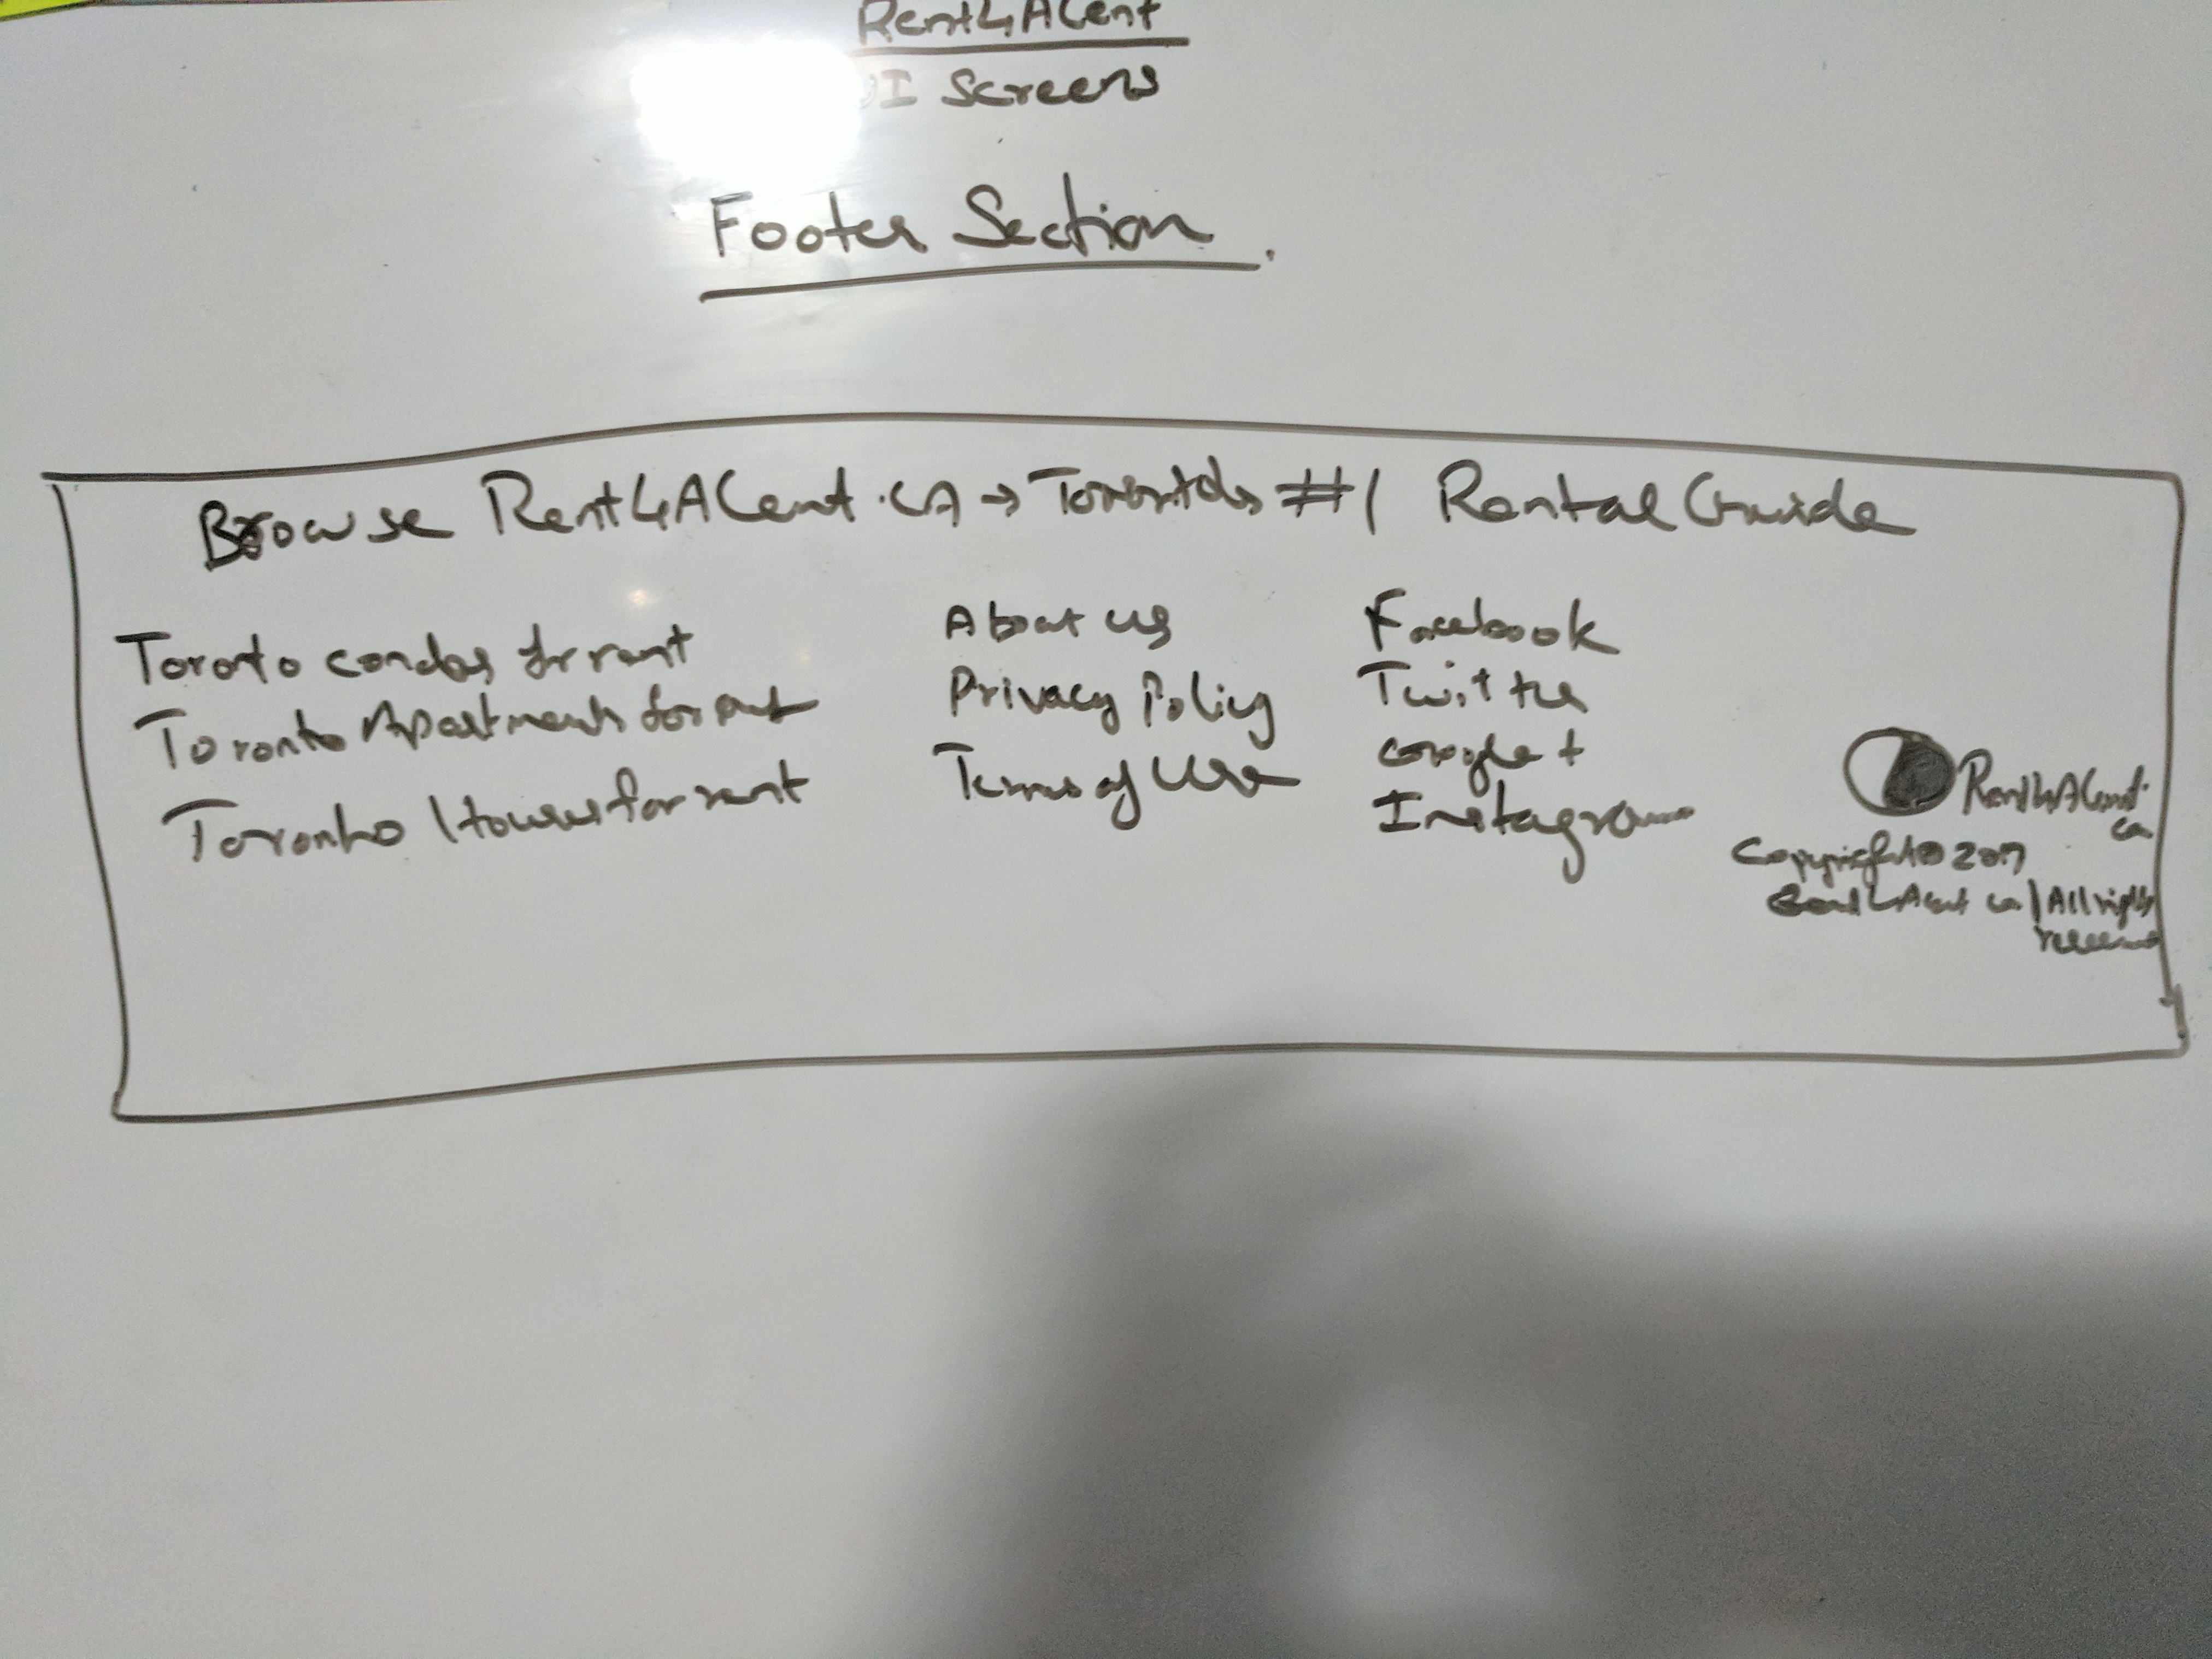 Rent4ACent
UI Screens
Footer Section.
Browse Rent4ACent.CA → Toronto's #1 Rental Guide
Toronto condos for rent
Toronto Apartments for rent
Toronto Houses for rent
About us
Privacy Policy
Terms of Use
Facebook
Twitter
Google +
Instagram
Rent4ACent.
ca
Copyright © 2017
Rent4ACent ca | All rights
reserved